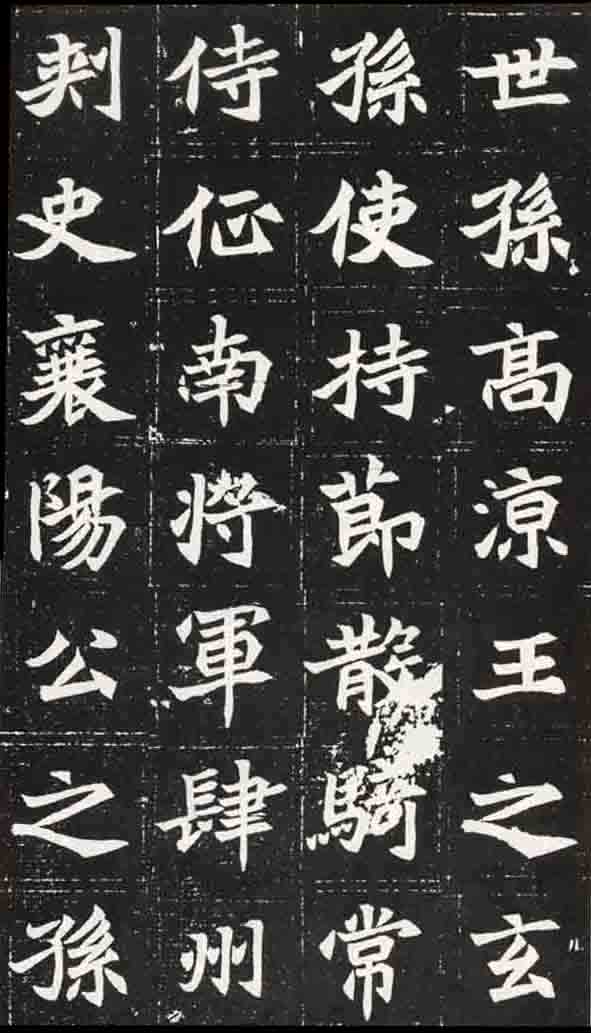 世孫高涼王之玄
孫使持節散騎常
侍征南將軍肆州
刺史襄陽公之孫